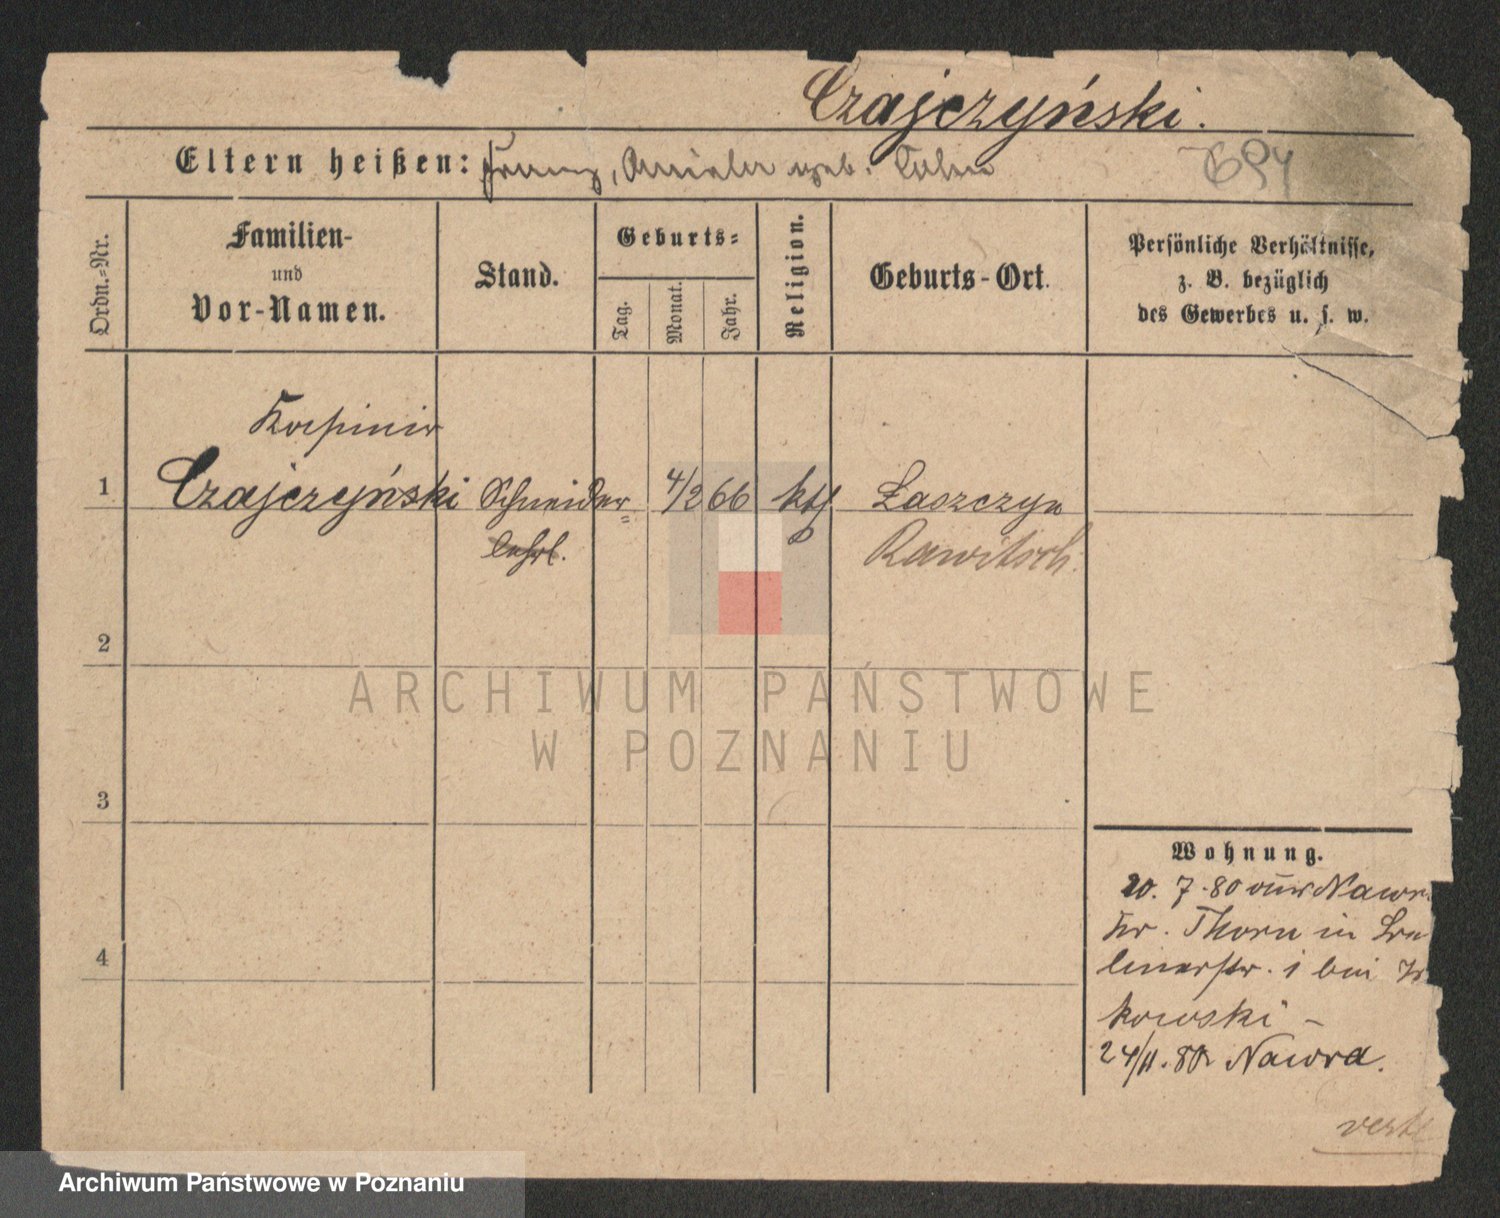 Czajczyński.
Eltern heißen: Franz, Aniela geb.
694
Ordn.-Nr.
Familien-
und
Vor-Namen.
Stand.
Geburts-
Tag.
Monat.
Jahr.
Religion.
Geburts-Ort.
Persönliche Verhältnisse,
z. B. bezüglich
des Gewerbes u. s. w.
1
Czajczyński Schneider= 4/2 66 kth Łaszczyn
lehrl. Rawitsch.
2
ARCHIWUM PAŃSTWOWE
W POZNANIU
3
Wohnung.
20. 7. 80 aus Nawr
Kr. Thorn in
1 bei
kowski -
4
24/11. 80 Nawra.
verte
Archiwum Państwowe w Poznaniu